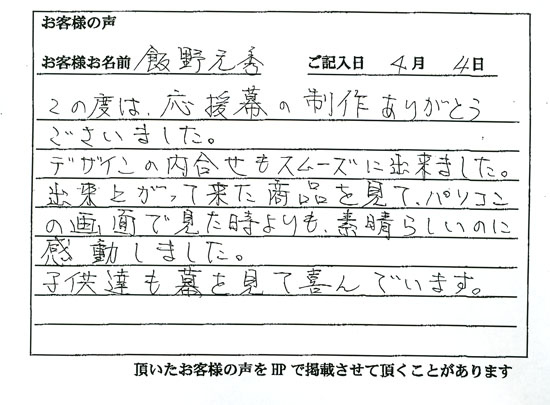 お客様の声
お客様お名前 飯野元秀 ご記入日 4月 4日
この度は、応援幕の制作ありがとう
ございました。
デザインの内合せもスムーズに出来ました。
出来上がって来た商品を見て、パソコン
の画面で見た時よりも、素晴らしいのに
感動しました。
子供達も幕を見て喜んでいます。
頂いたお客様の声をHPで掲載させて頂くことがあります